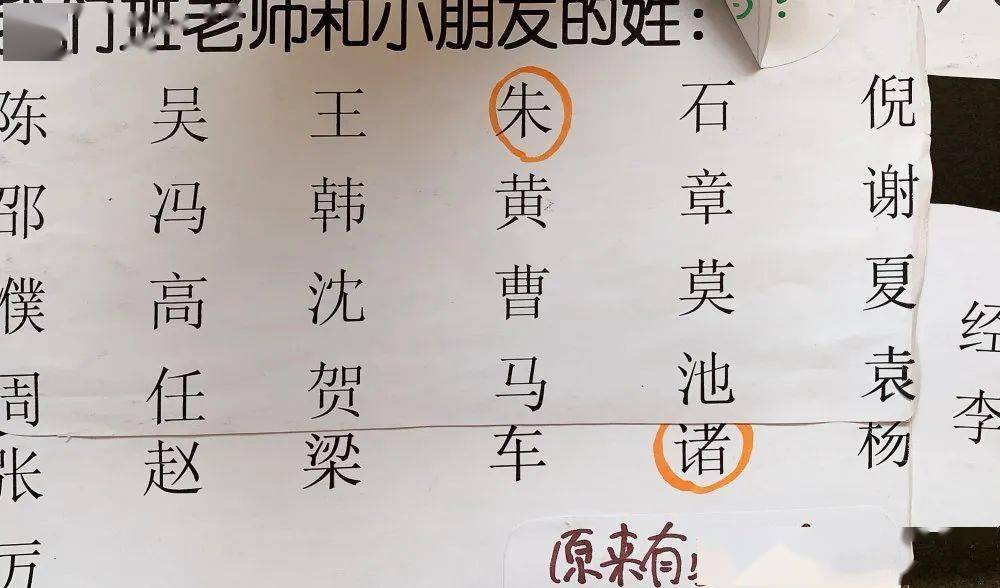 我们班老师和小朋友的姓：
陈 吴 王 朱 石 倪
邵 冯 韩 黄 章 谢
濮 高 沈 曹 莫 夏
周 任 贺 马 池 袁
张 赵 梁 车 诸 杨
厉
经
李
原来有